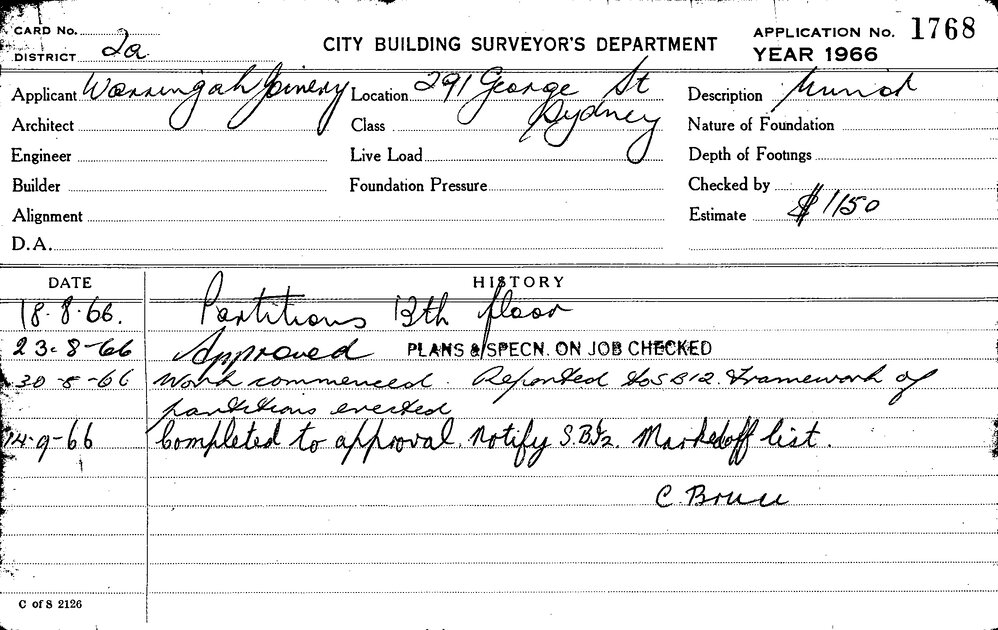 CARD No.
DISTRICT 2a
CITY BUILDING SURVEYOR'S DEPARTMENT
APPLICATION No. 1768
YEAR 1966
Applicant Warringah Joinery
Location 291 George St
Sydney
Description
Architect
Class
Nature of Foundation
Engineer
Live Load
Depth of Footings
Builder
Foundation Pressure
Checked by
Alignment
Estimate $1150
D.A.
DATE HISTORY
18.8.66. Partitions 12th floor
23.8-66 Approved PLANS & SPECN. ON JOB CHECKED
30-8-66 Work commenced. Reported to SBI2. Framework of
partitions erected
14-9-66 Completed to approval. Notify S.B.I2. Markedoff list.
C. Bruce
C of S 2126